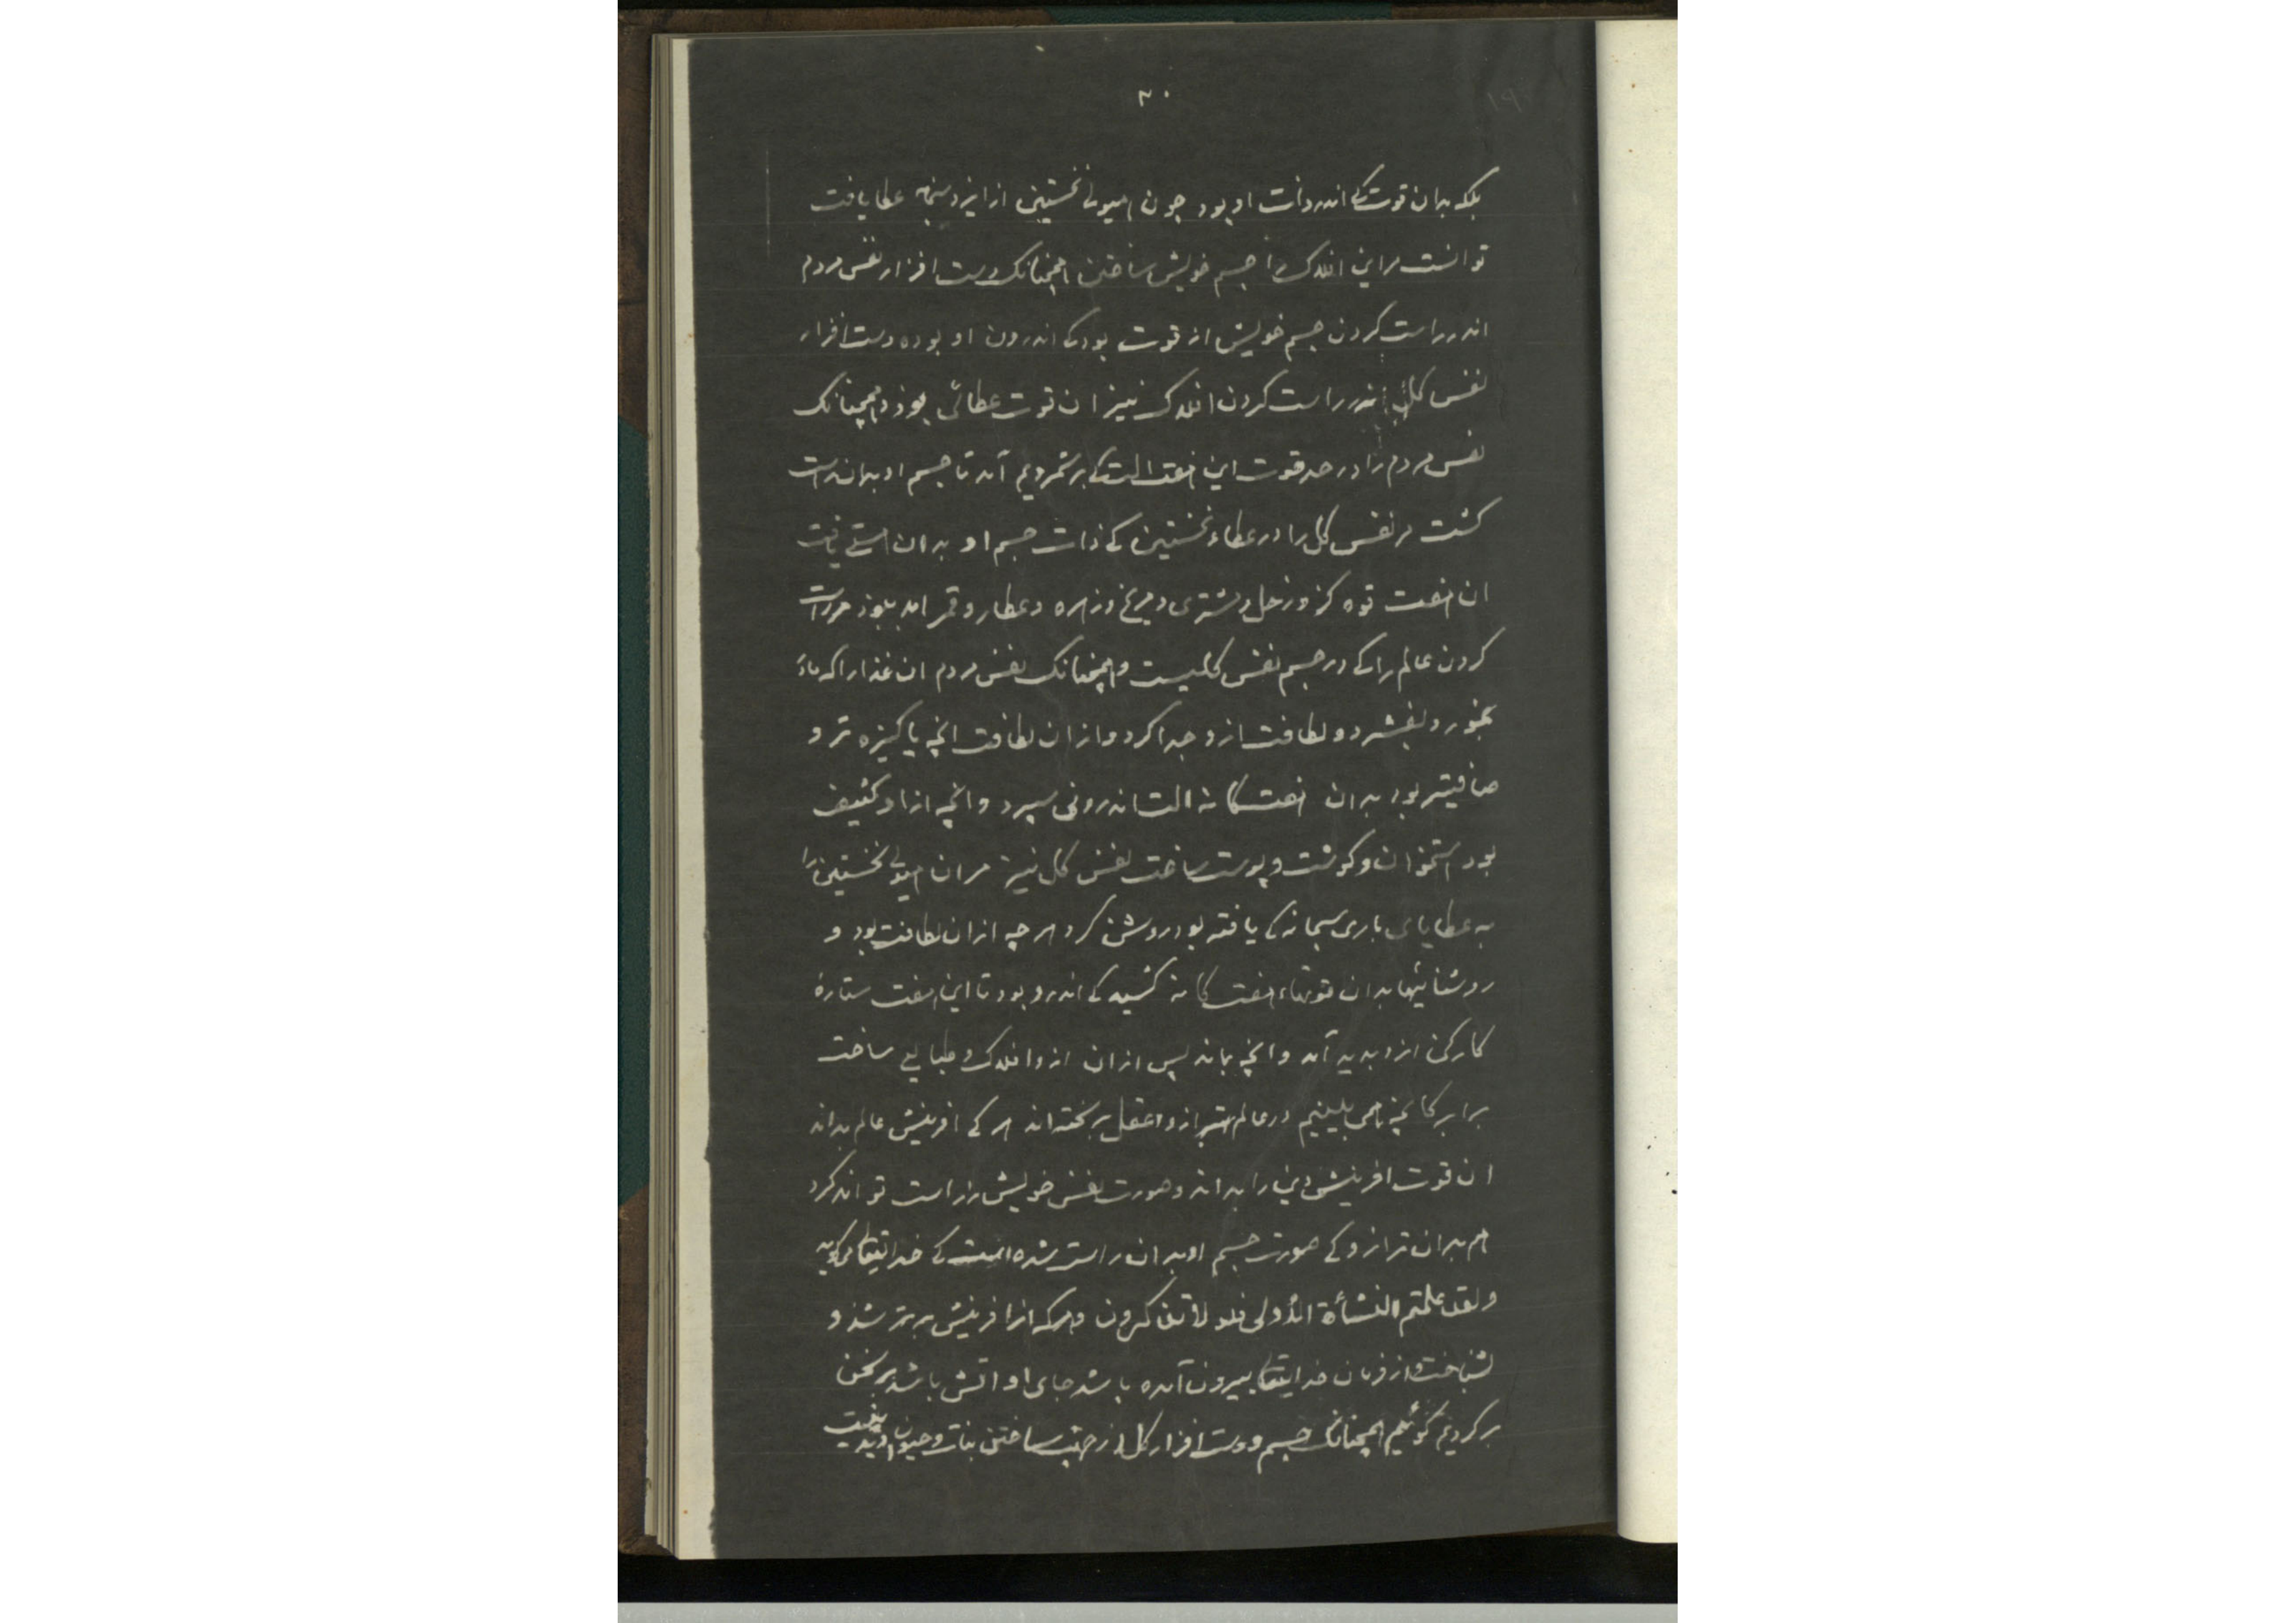 ۳۰
۱۹
بلکه بدان قوت کے اندر ذات او بود چون هیولے نخستین از ایزد سبحانه عطا یافت
توانست مراین افلاک را جسم خویش ساختن همچنانک دست افزار نفس مردم
اندر راست کردن جسم خویش از قوت بود کے اندرون او بوده دست افزار
نفس کل اندر راست کردن افلاک نیز ان قوت عطائی بوذ و همچنانک
نفس مردم را در حد قوت این هفت الت کے برشمردیم آمد تا جسم او بدان راست
کشت مر نفس کل را در عطاء نخستین کے ذات جسم او بدان هستے یافت
ان هفت قوه کزو زحل و مشتری و مریخ و زهره و عطارد و قمر امد ببوذ مر راست
کردن عالم را کے در جسم نفس کلیست و همچنانک نفس مردم ان غذا را که ماذ
بخورد بفشرد و لطافت ازو جدا کرد و از ان لطافت انچه پاکیزه تر و
صافیتر بود بدان هفت کانه الت اندرونی سپرد و انچه ازاو کثیف
بود استخوان و کوشت و پوست ساخت نفس کل نیز مر ان هیولے نخستین را
به عطایای باری سبحانه کے یافته بود روشن کرد هر چه از ان لطافت بود و
روشنائیها بدان قوتهاء هفت کانه کشید کے اندرو بود تا این هفت ستارهٔ
کارکن ازو پدید آمد و انچه بماند پس از ان ازو افلاک و طبایع ساخت
برابر کانچه همی بینیم در عالم بترازو عقل برخته اند هر کے افرینش عالم بداند
ان قوت افرینش دین را بداند و صورت نفس خویش را راست تواند کرد
هم بدان ترازو کے صورت جسم او بدان راست شده است کے خدایتعالی میکوید
ولقد علمتم النشأة الأولی فلولا تذکرون و هرکه از افرینش برتر شذ و
نشناخت و از فرمان خدایتعالی بیرون آمده باشد جای او اتش باشد بر سخن
برکردیم کوئیم همچنانک جسم و دست افزار کل از جهت ساختن نبات و حیوان پدید